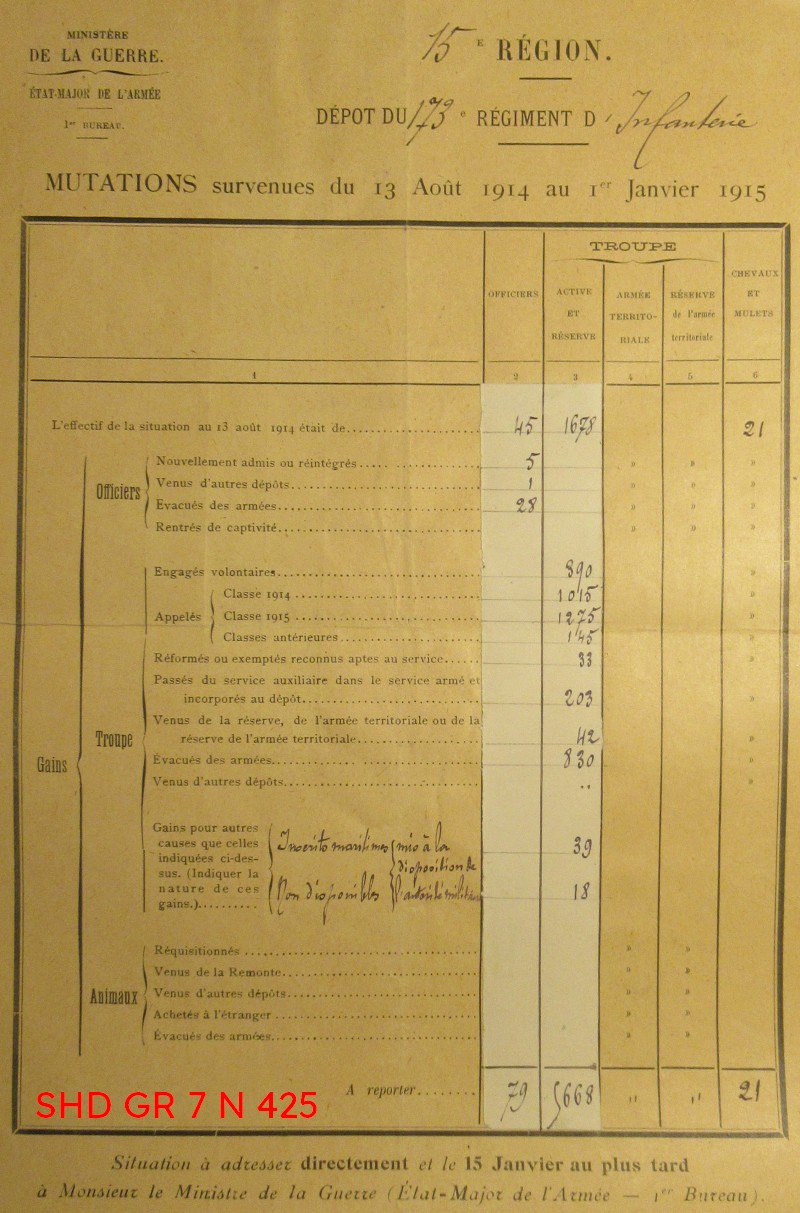 MINISTÈRE
DE LA GUERRE.
ÉTAT-MAJOR DE L'ARMÉE
1er BUREAU.
15e RÉGION.
DÉPOT DU 173e RÉGIMENT D'Infanterie
MUTATIONS survenues du 13 Août 1914 au 1er Janvier 1915
TROUPE
OFFICIERS
ACTIVE ET RÉSERVE
ARMÉE TERRITO-RIALE
RÉSERVE de l'armée territoriale
CHEVAUX ET MULETS
1 2 3 4 5 6
L'effectif de la situation au 13 août 1914 était de 45 1678 21
Gains
Officiers
Nouvellement admis ou réintégrés 5 » » »
Venus d'autres dépôts 1 » » »
Évacués des armées 28 » » »
Rentrés de captivité » » »
Troupe
Engagés volontaires 390 »
Appelés
Classe 1914 1015 »
Classe 1915 1275 »
Classes antérieures 145 »
Réformés ou exemptés reconnus aptes au service 33 »
Passés du service auxiliaire dans le service armé et
incorporés au dépôt 203 »
Venus de la réserve, de l'armée territoriale ou de la
réserve de l'armée territoriale 42 »
Évacués des armées 830 »
Venus d'autres dépôts .. »
Gains pour autres
causes que celles
indiquées ci-des-
sus. (Indiquer la
nature de ces
gains.)
Inscrits maritimes 39
Non disponibles 18
mis à la
disposition de
l'autorité militaire
Animaux
Réquisitionnés » »
Venus de la Remonte » »
Venus d'autres dépôts » »
Achetés à l'étranger » »
Évacués des armées » »
A reporter 79 5668 " " 21
SHD GR 7 N 425
Situation à adresser directement et le 15 Janvier au plus tard
à Monsieur le Ministre de la Guerre (État-Major de l'Armée — 1er Bureau).